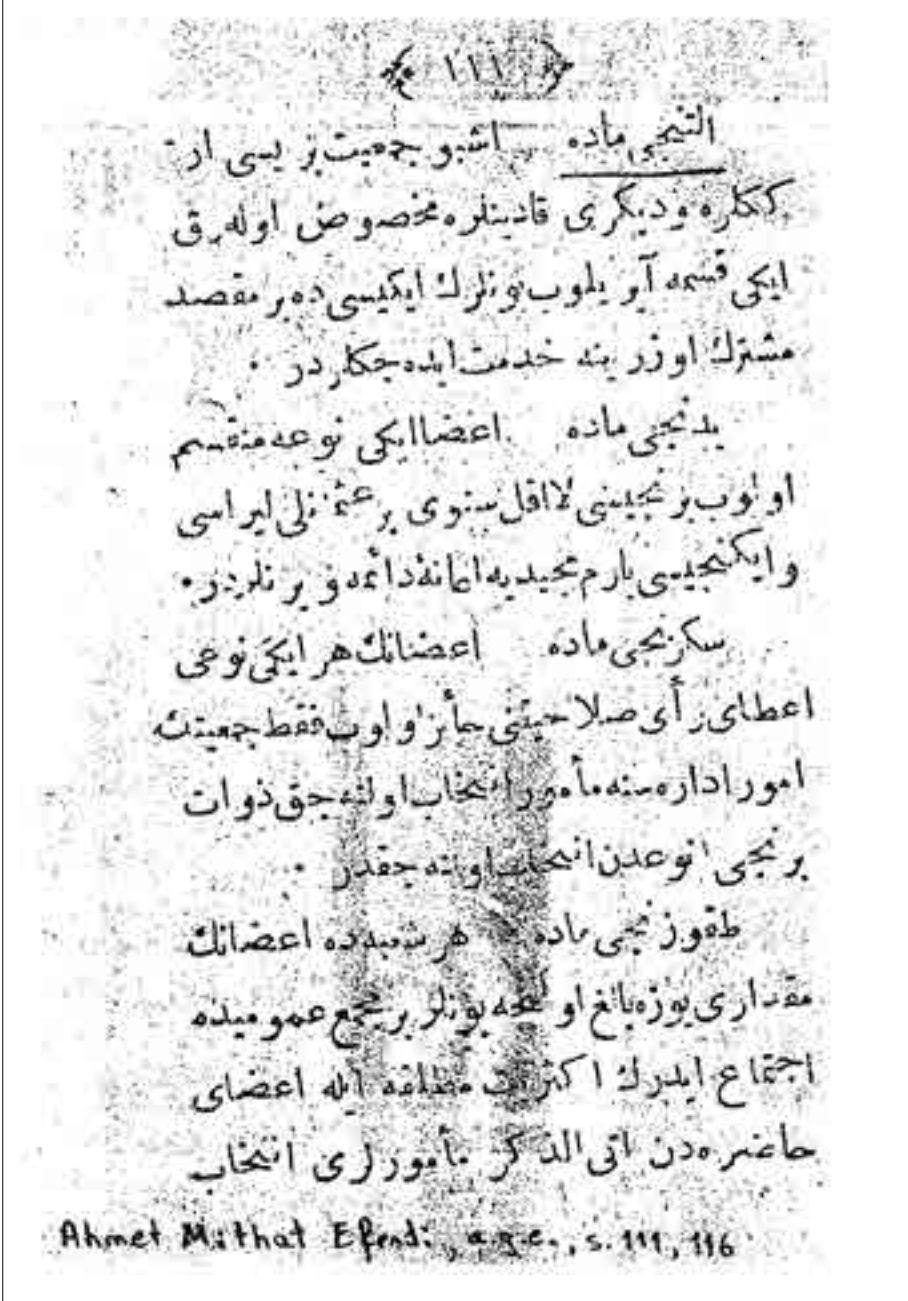 ﴿ ١١١ ﴾
التنجی ماده اشبو جمعیت بریسی ار
ککلره و دیکری قادینلره مخصوص اوله رق
ایکی قسمه آیریلوب بونلرك ایکیسی ده بر مقصد
مشترك اوزرینه خدمت ایده جکلردر ٠
یدنجی ماده اعضا ایکی نوعه منقسم
اولوب برنجیسی لااقل سنوی بر عثمانلی لیراسی
و ایکنجیسی یارم مجیدیه اعانهٔ دائمه ویرنلردر ٠
سکزنجی ماده اعضانك هر ایکی نوعی
اعطای رأی صلاحیتنی حائز اولوب فقط جمعیتك
امور اداره سنه مأمور انتخاب اولنه جق ذوات
برنجی نوعدن انتخاب اولنه جقدر ٠
طقوزنجی ماده هر شعبه ده اعضانك
مقداری یوزه بالغ اولنجه بونلر بر مجمع عمومیده
اجتماع ایدرك اکثریت مطلقه ایله اعضای
حاضره دن اتی الذکر مأمورلری انتخاب
Ahmet Mithat Efendi, a.g.e., s. 111, 116